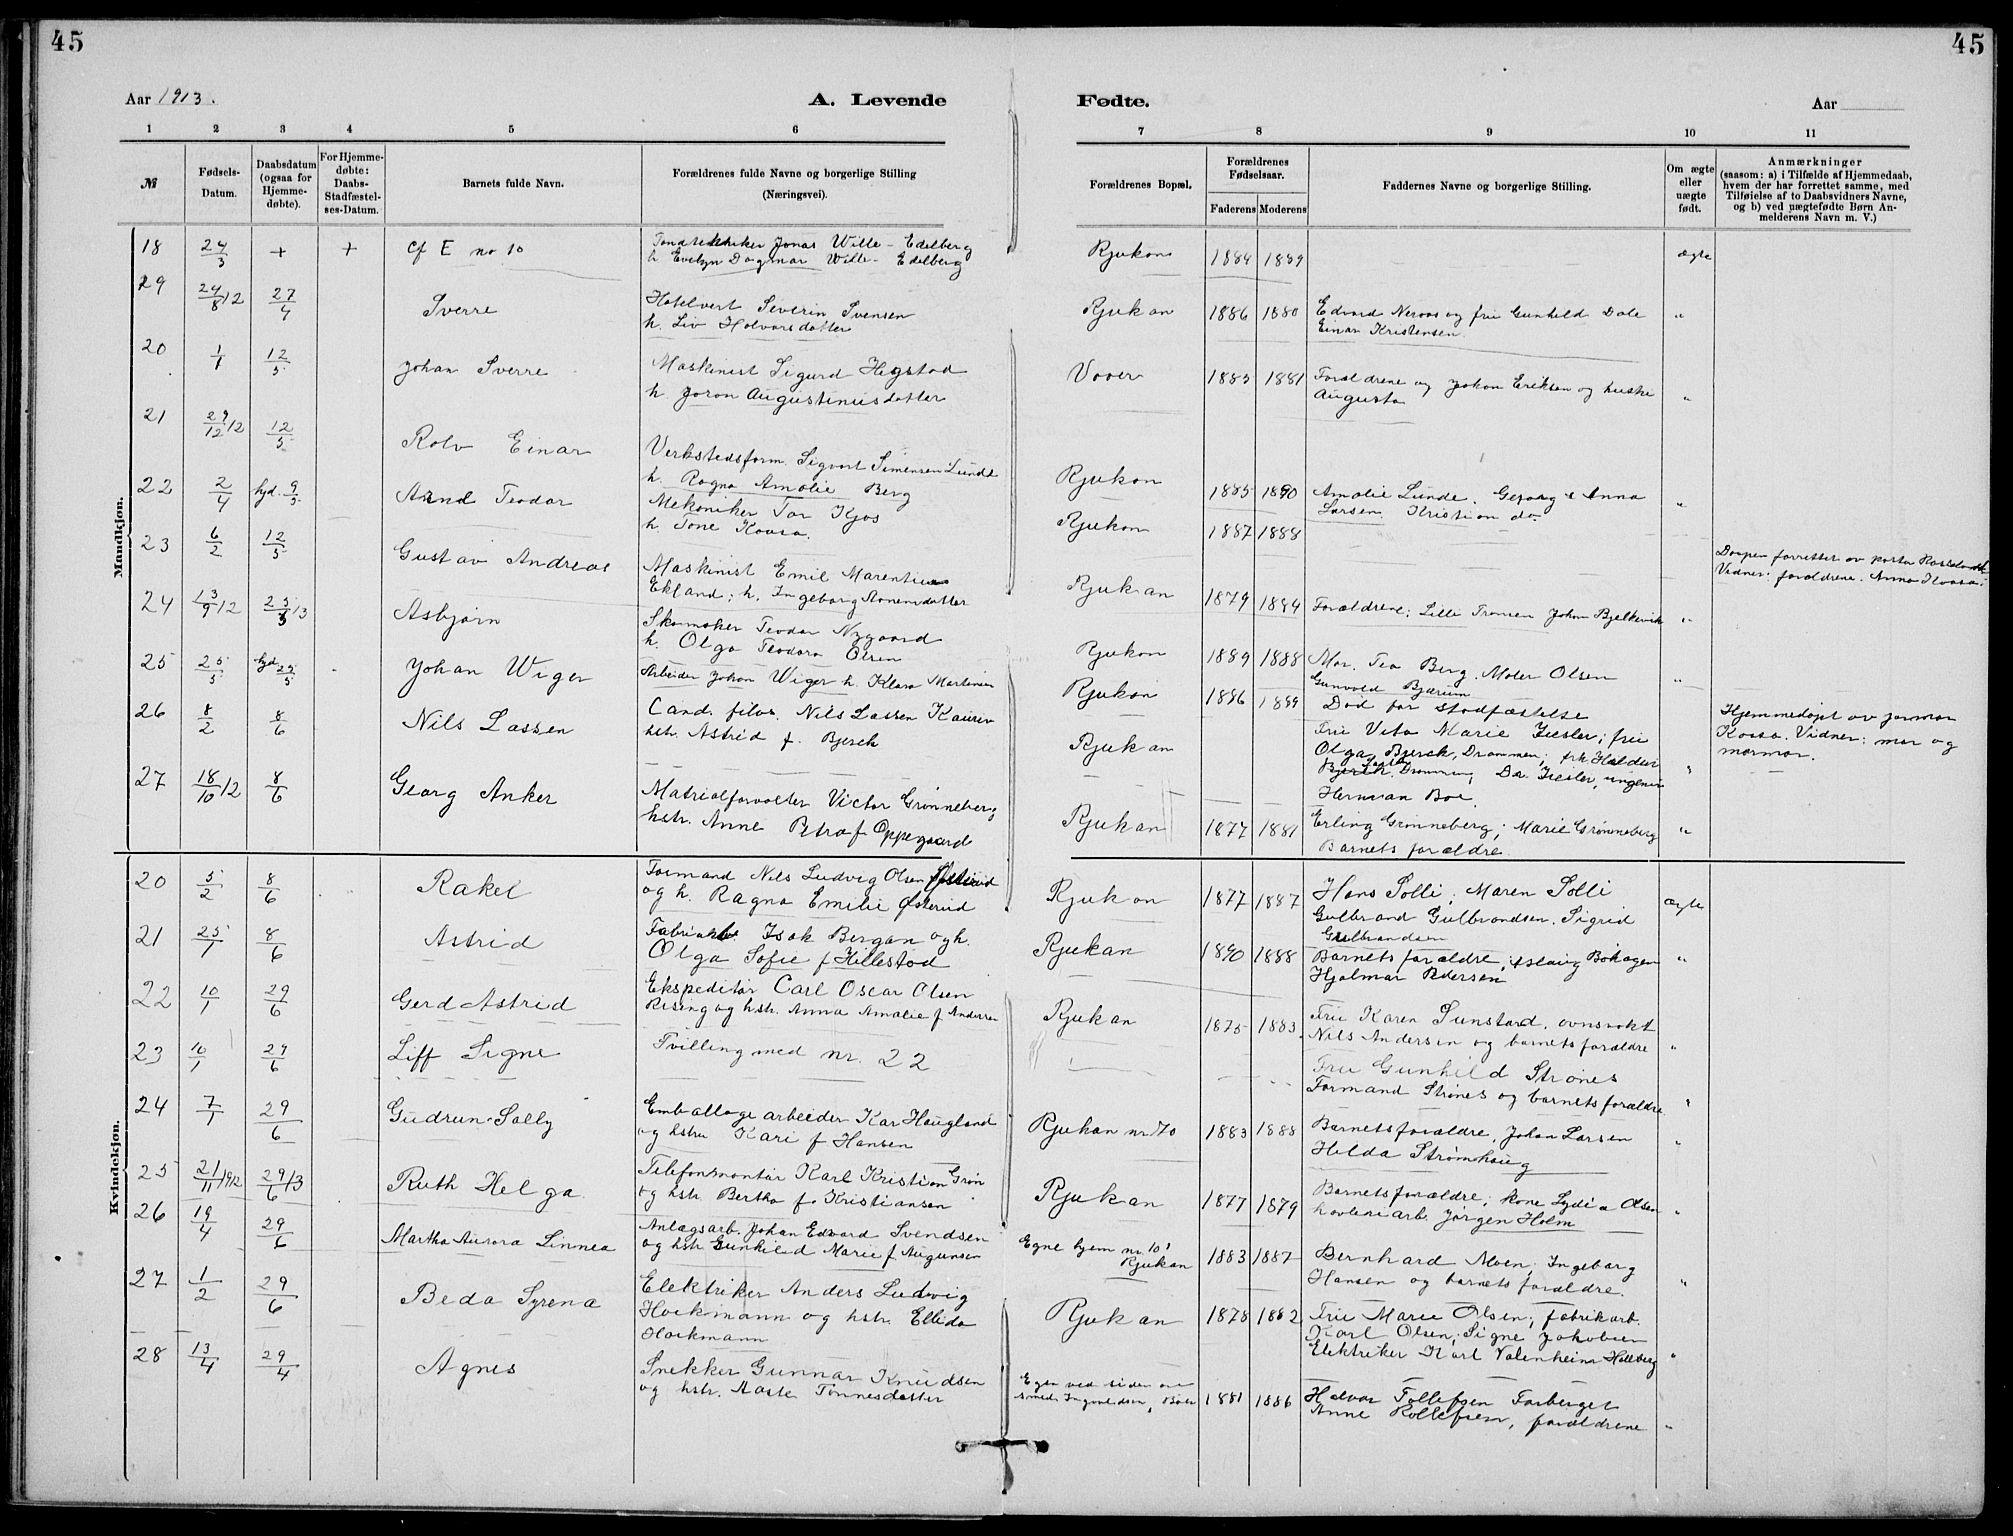 45
45
Aar 1913.
A. Levende
Fødte.
Aar
1 2 3 4 5 6
7 8 9 10 11
№
Fødsels-Datum.
Daabsdatum (ogsaa for Hjemme-døbte).
For Hjemme-døbte: Daabs-Stadfæstel-ses-Datum.
Barnets fulde Navn.
Forældrenes fulde Navne og borgerlige Stilling
(Næringsvei).
Forældrenes Bopæl.
Forældrenes Fødselsaar.
Faderens Moderens
Faddernes Navne og borgerlige Stilling.
Om ægte eller uægte født.
Anmærkninger
(saasom: a) i Tilfælde af Hjemmedaab,
hvem der har forrettet samme, med
Tilføielse af to Daabsvidners Navne,
og b) ved uægtefødte Børn An-
melderens Navn m. V.)
Mandkjøn.
18 24/3 + + cf E no 10 Jonas Wille-Edelberg
h Evelyn Dagmar Wille-Edelberg
Rjukan 1884 1889 ægte
29 24/8 12 27/4 Sverre Hotelvert Severin Svensen
h. Liv Halvorsdatter
Rjukan 1886 1880 Edvard Neraas og fru Gunhild Dale
Einar Kristensen "
20 1/1 12/5 Johan Sverre Maskinist Sigurd Hegstad
h. Joron Augustinusdatter
Vaaer 1883 1881 Forældrene og Johan Eriksen og hustru
Augusta "
21 29/12 12 12/5 Rolv Einar Verkstedsform. Sigvart Simensen Lunde
h. Ragna Amalie Berg
Rjukan 1885 1890 Amalie Lunde. Georg & Anna
Larsen. Kristian do. "
22 2/4 hjd. 9/5 Arne Teodor Mekaniker Tor Kjos
h Tone Kaasa.
Rjukan 1887 1888
Vidner: forældrene. Anna
23 6/2 12/5 Gustav Andreas Maskinist Emil Marentius
Ekland; h. Ingeborg
Rjukan 1879 1884 Forældrene; Lilli Johan Bjelkevik "
24 13/9 12 25/5 13 Asbjørn Skomaker Teodor Nygaard
h. Olga Teodora Olsen
Rjukan 1889 1888 Mor. Tea Berg. Maler Olsen
Gunvald Bjærum "
25 25/5 hjd 25/5 Johan Wiger Arbeider Johan Wiger h. Klara
Rjukan 1886 1889 Død før stadfæstelse
Hjemmedøpt av jormor
Kaasa. Vidner: mor og
mormor.
26 8/2 8/6 Nils Lassen Cand. filos. Nils Lassen
hstr. Astrid f. Bjerck
Rjukan Fru Marie fru
Olga Bjerck, Drammen; frk Haldur
Drammen, Dr. ingeniør
Herman Boe. "
27 18/10 12 8/6 Georg Anker Matrialforvalter Victor Grønneberg
hstr. Anne Petra f Oppegaard
Rjukan 1877 1881 Erling Grønneberg; Marie Grønneberg
Barnets forældre "
Kvindekjøn.
20 5/2 8/6 Rakel Formand Nils Ludvig Olsen
og h. Ragna Emilie Østerud
Rjukan 1877 1887 Hans Solli; Maren Solli
Gulbrand Gulbrandsen. Sigrid
Gulbrandsen ægte
21 25/1 8/6 Astrid Isak Bergan og h.
Olga Sofie f Hillestad
Rjukan 1890 1888 Barnets forældre, Aslaug Bøhagen
Hjalmar Pedersen "
22 10/1 29/6 Gerd Astrid Ekspeditør Carl Oscar Olsen
Rising og hstr. Anna Amalie f Andersen
Rjukan 1875 1883 Fru Karen Sunstard. ovnsvakt
Nils Andersen og barnets forældre "
23 10/1 29/6 Liff Signe Tvilling med nr. 22
Fru Gunhild Strønes
Formand Strønes og barnets forældre "
24 7/1 29/6 Gudrun Sally Emballage arbeider Kar Haugland
og hstru Kari f Hansen
Rjukan nr. 70 1883 1888 Barnets forældre, Johan Larsen
Helda Strømhaug "
25 21/11 1912 29/6 13 Ruth Helga Telefonmontør Karl Kristian Grøn
og hstr. Bertha f. Kristiansen
Rjukan 1877 1879 Barnets forældre; kone Lydia Olsen
arb. Jørgen Holm "
26 19/4 29/6 Martha Aurora Linnea Anlægsarb. Johan Edvard Svendsen
og hstr Gunhild Marie f Augunsen
Egne hjem nr. 101
Rjukan 1883 1887 Bernhard Moen; Ingeborg
Hansen og barnets forældre. "
27 1/2 29/6 Beda Syrena Elektriker Anders Ludvig
Hackmann og hstr. Ellida
Hackmann
Rjukan 1878 1882 Fru Marie Olsen; fabrikarb.
Karl Olsen; Signe Jakobsen
Elektriker Karl "
28 13/4 29/4 Agnes Snekker Gunnar Knudsen
og hstr. Aaste Tønnesdatter
Egen ved siden av
smed 1881 1886 Halvor Tollefsen
Anne Rollefsen, forældrene "